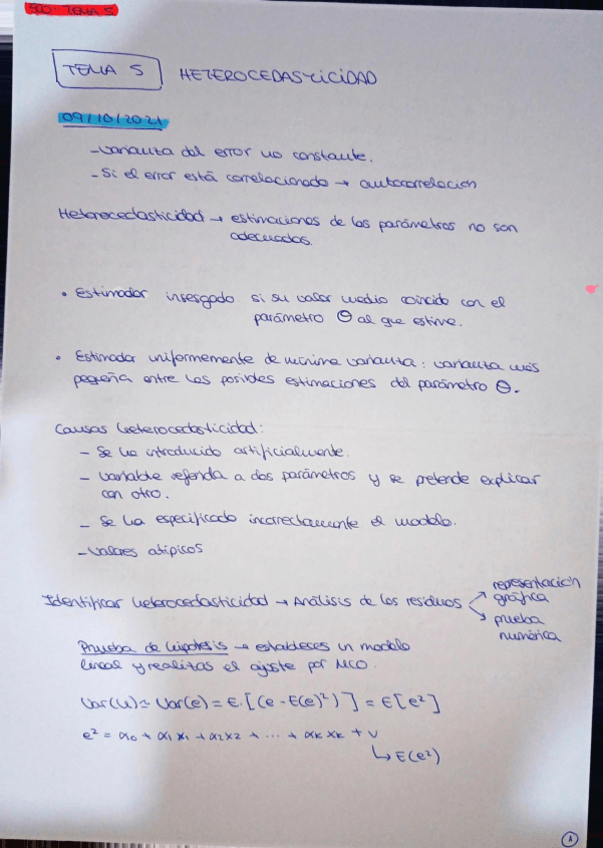 ECO - TEMA 5
TEMA 5 HETEROCEDASTICIDAD
09/10/2021
- Varianza del error no constante.
- Si el error está correlacionado → autocorrelación
Heterocedasticidad → estimaciones de los parámetros no son
adecuados.
• Estimador insesgado si su valor medio coincide con el
parámetro Θ al que estime.
• Estimador uniformemente de mínima varianza: varianza más
pequeña entre las posibles estimaciones del parámetro Θ.
Causas heterocedasticidad:
- Se ha introducido artificialmente.
- Variable referida a dos parámetros y se pretende explicar
con otro.
- Se ha especificado incorrectamente el modelo.
- Valores atípicos
Identificar heterocedasticidad → Análisis de los residuos
representación
gráfica
prueba
numérica
Prueba de hipótesis → estableces un modelo
lineal y realizas el ajuste por MCO.
Var(u) ≃ Var(e) = E·[(e - E(e)²)] = E[e²]
e² = α₀ + α₁x₁ + α₂x₂ + ... + αₖxₖ + v
↳ E(e²)